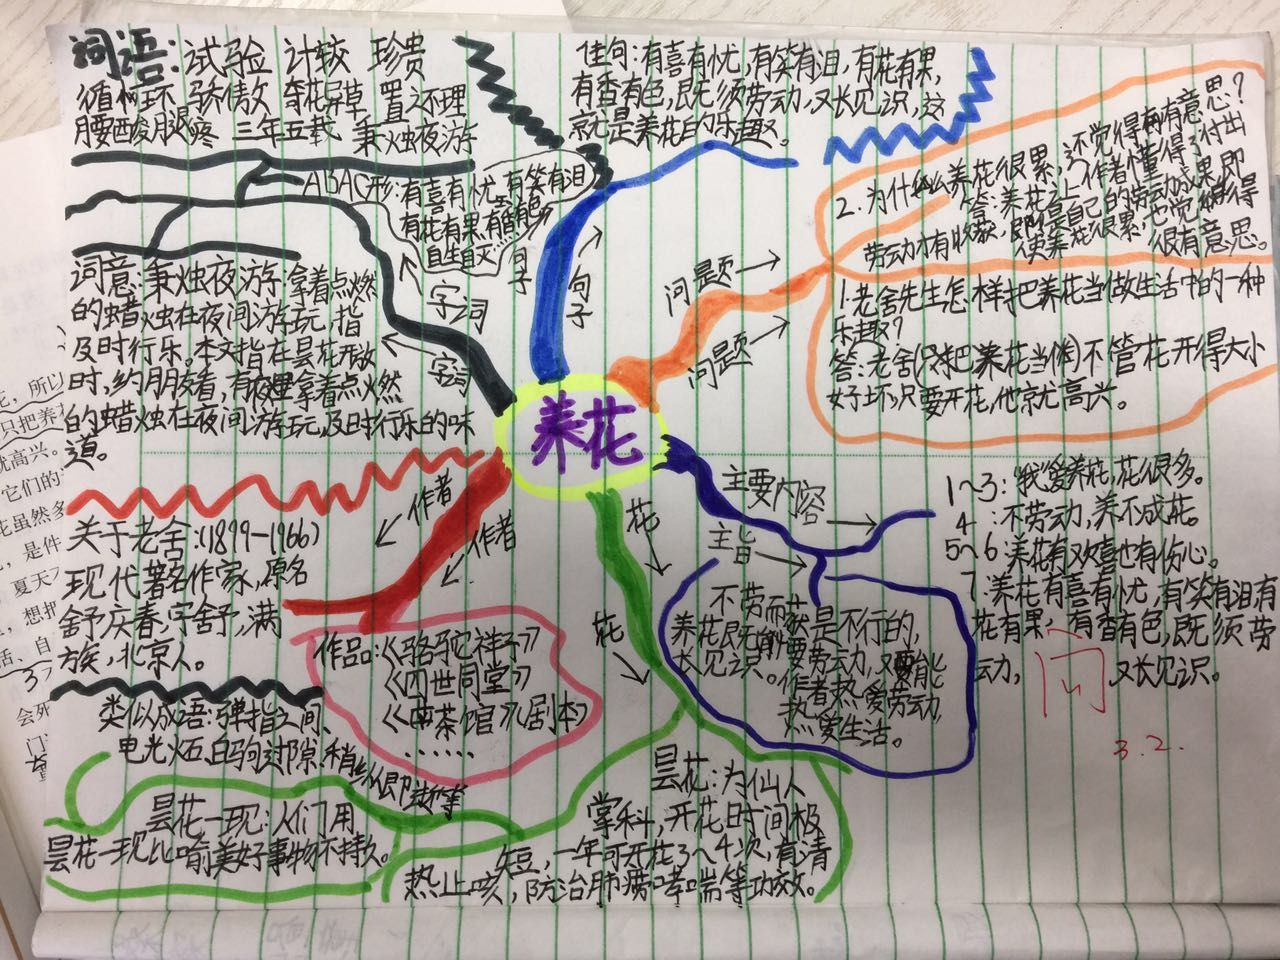 词语:试验 计较 珍贵
循环 骄傲 奇花异草 置之不理
腰酸腿疼 三年五载 秉烛夜游
ABAC形:有喜有忧 有笑有泪
有花有果 有香有色
自生自灭
字词
字词
词意:秉烛夜游:拿着点燃
的蜡烛在夜间游玩,指
及时行乐。本文指在昙花开放
时,约朋友看,有夜里拿着点燃
的蜡烛在夜间游玩,及时行乐的味
道。
佳句:有喜有忧,有笑有泪,有花有果,
有香有色,既须劳动,又长见识,这
就是养花的乐趣。
句子
句子
问题
问题
2.为什么养花很累,还觉得有意思?
答:养花之上作者懂得了付出
劳动才有收获,即得自己的劳动成果,即
使养花很累,也觉得
很有意思。
1.老舍先生怎样把养花当做生活中的一种
乐趣?
答:老舍(只把养花当作)不管花开得大小
好坏,只要开花,他就高兴。
养花
主要内容
1~3:“我”爱养花,花很多。
4:不劳动,养不成花。
5~6 养花有欢喜也有伤心。
7:养花有喜有忧,有笑有泪有
花有果,有香有色,既须劳
动,又长见识。
主旨
不劳而获是不行的,
养花既须要劳动,又能
长见识。作者热爱劳动,
热爱生活。
阅
3.2.
作者
作者
关于老舍:(1899-1966)
现代著名作家,原名
舒庆春,字舒,满
族,北京人。
作品:《骆驼祥子》
《四世同堂》
《茶馆》(剧本)
……
花
花
类似成语:弹指之间,
电光火石,白驹过隙,稍
纵即逝等
昙花一现:人们用
昙花一现比喻美好事物不持久。
昙花:为仙人
掌科,开花时间极
短,一年可开花3~4次,有清
热止咳,防治肺痨哮喘等功效。